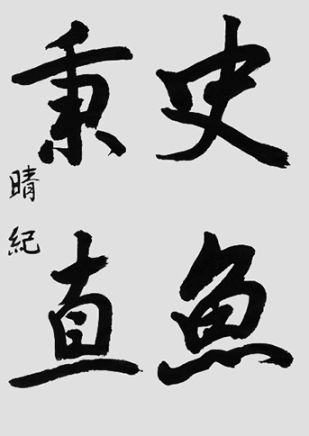 史魚
秉直
晴紀